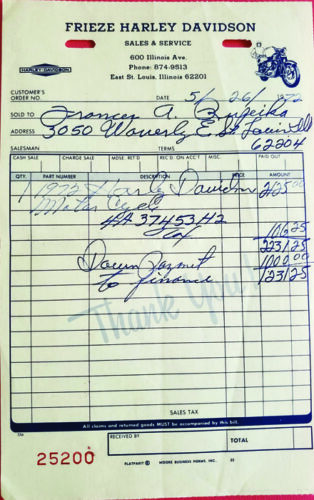 FRIEZE HARLEY DAVIDSON
SALES & SERVICE
600 Illinois Ave.
Phone: 874-9513
East St. Louis, Illinois 62201
HARLEY-DAVIDSON
CUSTOMER'S ORDER NO. DATE 5/26/1972
SOLD TO Frances A.
ADDRESS 3050 Waverly E. St Louis Ill
SALESMAN TERMS 62204
CASH SALE CHARGE SALE MDSE. RET'D REC'D ON ACC'T MISC. PAID OUT
QTY. PART NUMBER DESCRIPTION PRICE AMOUNT
1 1972 Harley Davidson 2125.00
Motor Cycle
37453H2
Tax 106.25
2231.25
Down Payment 1000.00
to finance 1231.25
Thank You!
SALES TAX
All claims and returned goods MUST be accompanied by this bill.
25200
RECEIVED BY TOTAL
FLATPAKIT MOORE BUSINESS FORMS, INC.